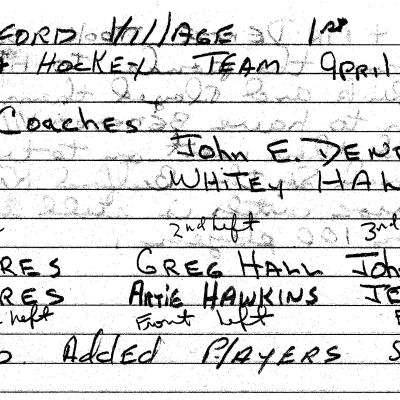 FORD VIllAGE 1st
HOCKEY TEAM April
Coaches
John E. DEN
WHITEY HAL
2nd Left 3rd
RES GREG HALL Joh
RES ARTIE HAWKINS JE
Left Front Left F
Added PlAYERS S